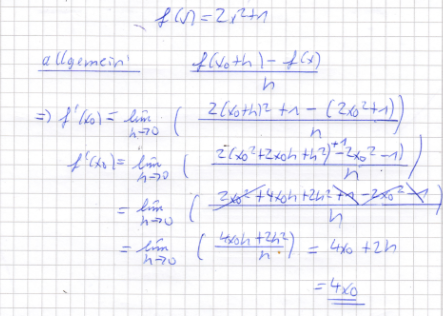 f(x) = 2x²+1
allgemein: f(x₀+h) - f(x) / h
=> f'(x₀) = lim h→0 ( 2(x₀+h)² + 1 - (2x₀²+1) / h )
f'(x₀) = lim h→0 ( 2(x₀²+2x₀h+h²)+1-2x₀²-1) / h )
= lim h→0 ( 2x₀²+4x₀h+2h²+1-2x₀²-1 / h )
= lim h→0 ( 4x₀h+2h² / h ) = 4x₀+2h
= 4x₀